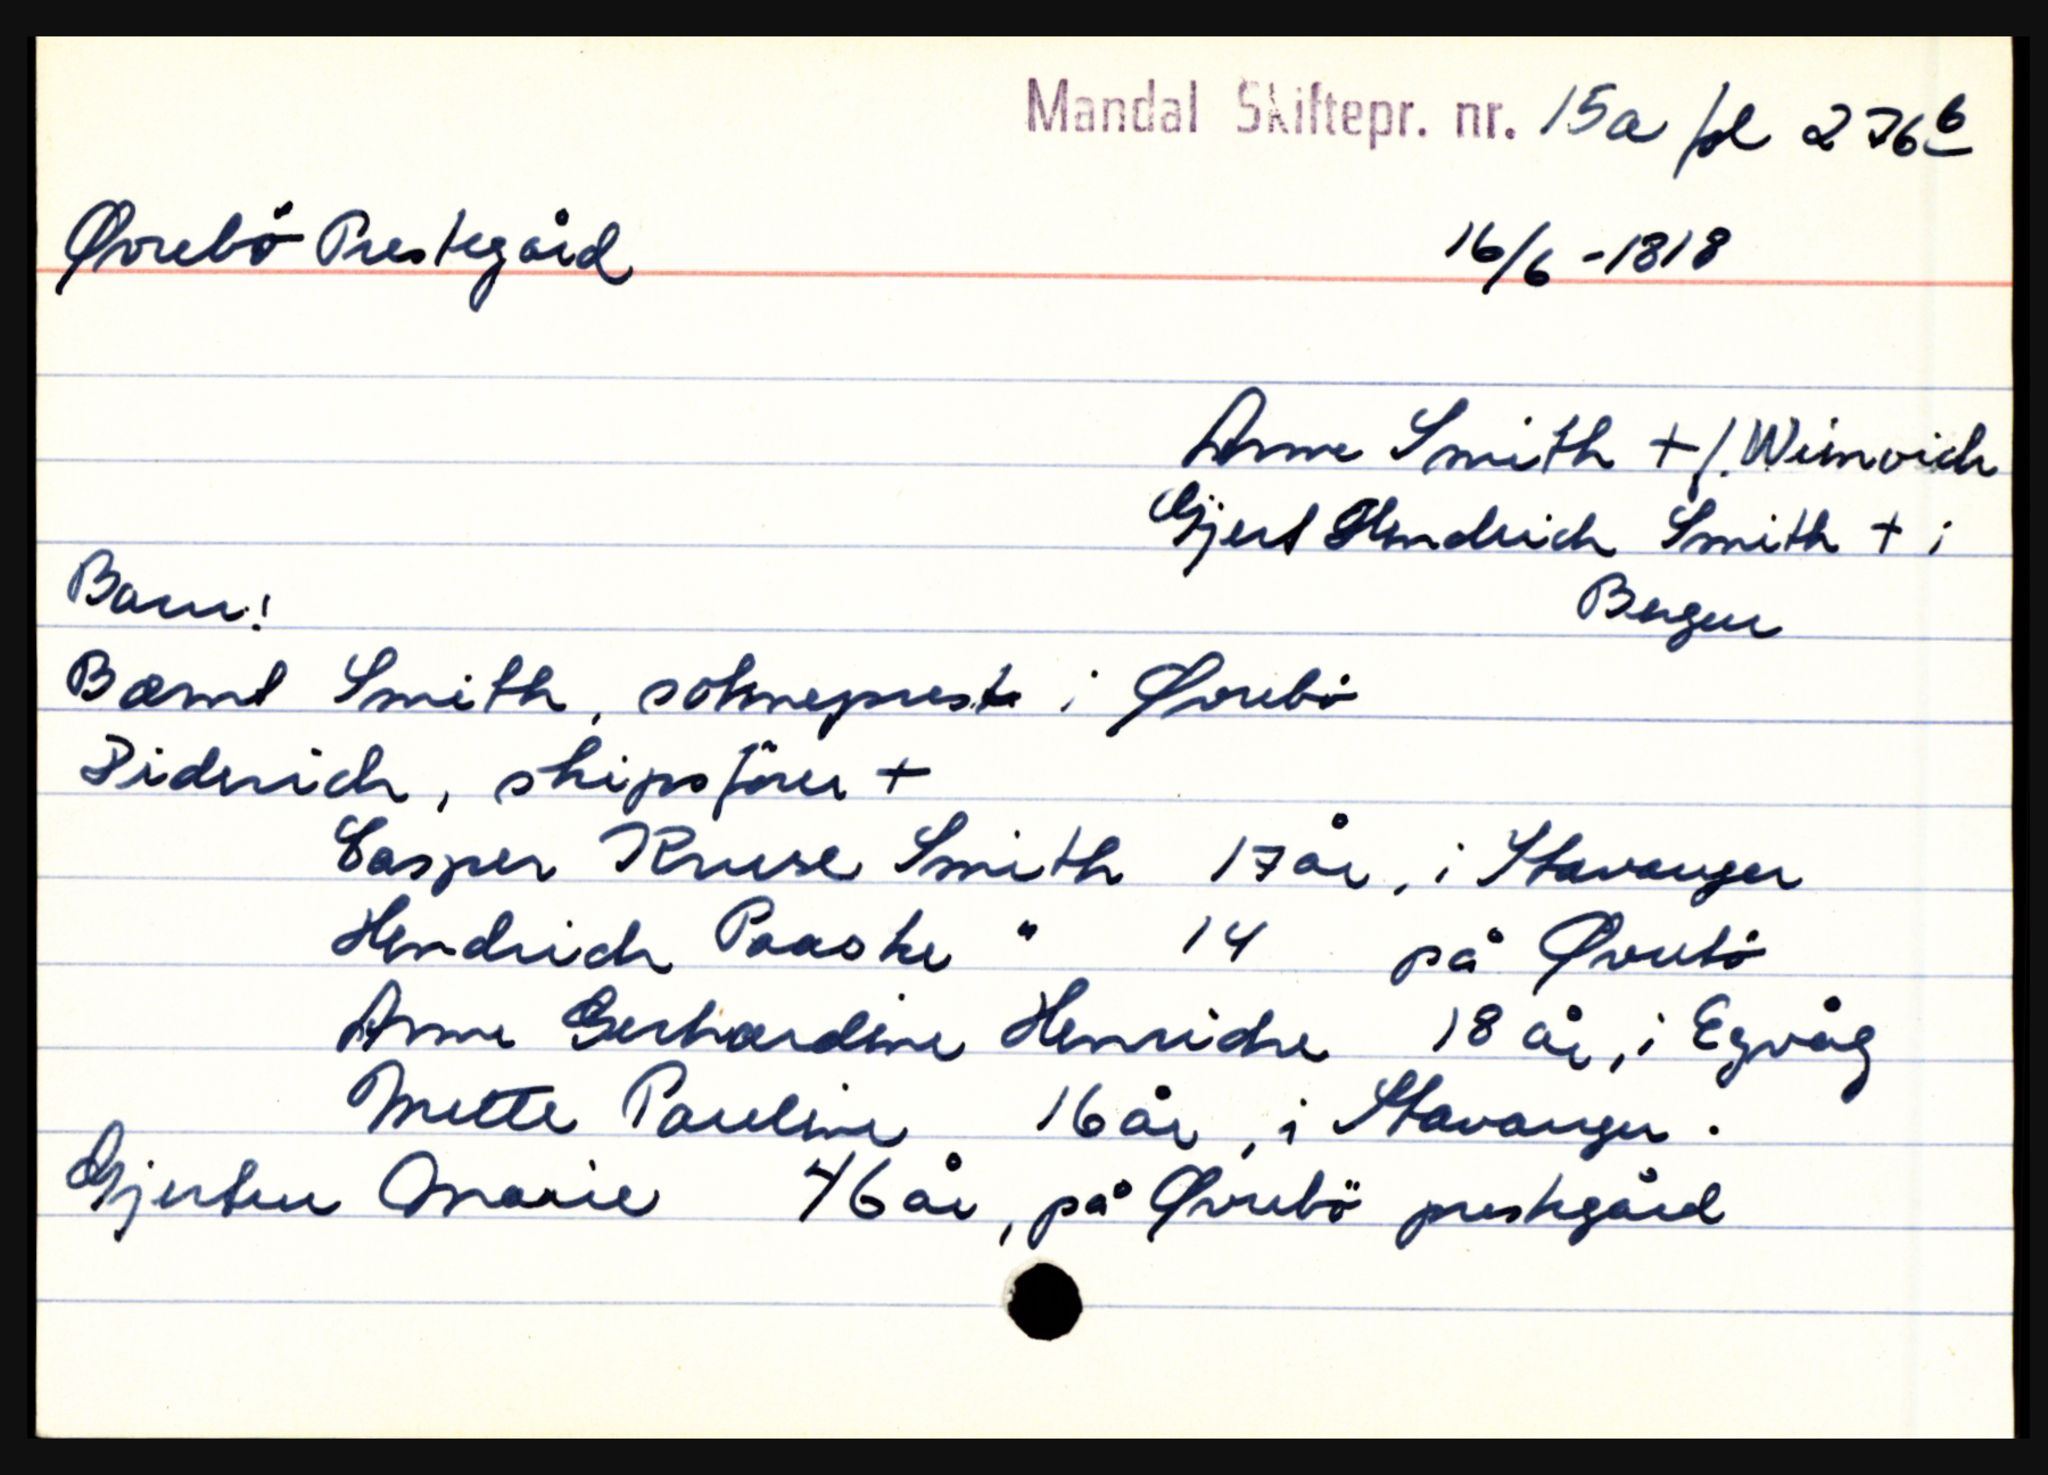 Mandal Skiftepr. nr. 15a fol 276b
Øvrebö Prestegård 16/6 -1818
Anne Smith + f. Weinvich
Gjert Hendrich Smith + i
Bergen
Barn:
Bærnt Smith, sokneprest i Øvrebö
Diderich, skipsförer +
Casper Kruse Smith 17 år, i Stavanger
Hendrich Paaske " 14 på Øvrebö
Anne Gerhardine Henriche 18 år, i Egvåg
Mette Pauline 16 år, i Stavanger.
Gjertru Marie 46 år, på Øvrebö prestegård